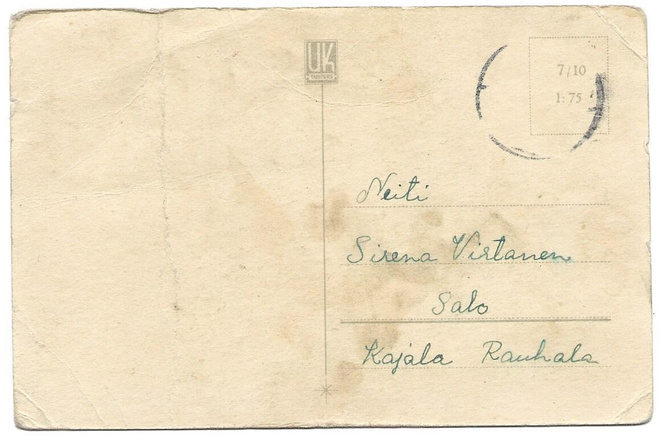 UK
7/10
1:75
Neiti
Sirena Virtanen
Salo
Kajala Rauhala